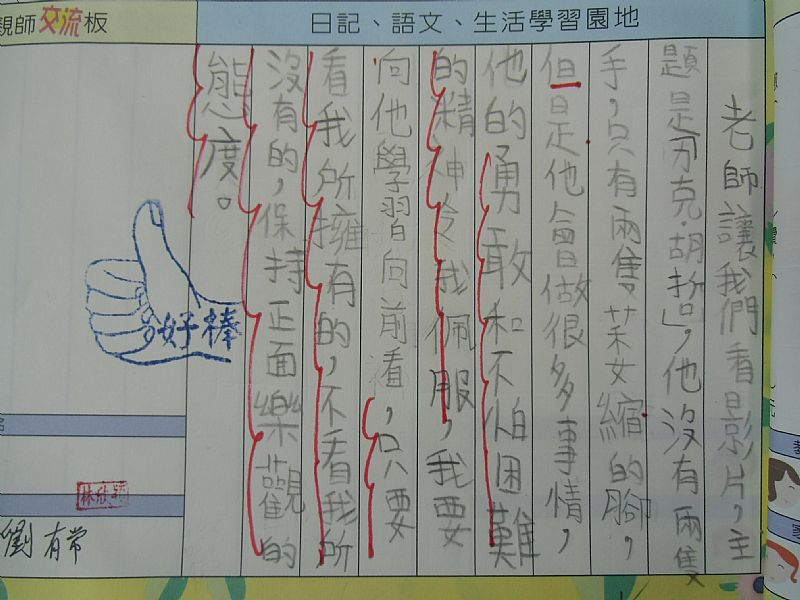 親師交流板
日記、語文、生活學習園地
老師讓我們看影片,主
題是「力克.胡哲」,他沒有兩隻
手,只有兩隻萎縮的腳,
但是他會做很多事情,
他的勇敢和不怕困難
的精神令我佩服,我要
向他學習向前看,只要
看我所擁有的,不看我所
沒有的,保持正面樂觀的
態度。
好棒
劉有常